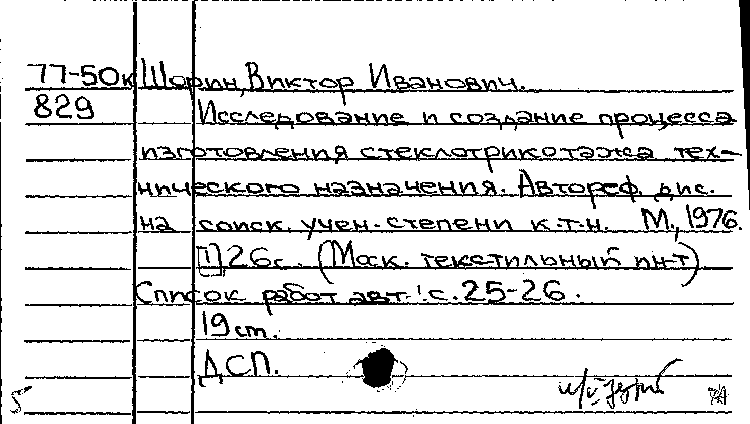 77-50к Шорин, Виктор Иванович.
829 Исследование и создание процесса
изготовления стеклотрикотажа тех-
нического назначения. Автореф. дис.
на соиск. учен. степени к.т.н. М., 1976.
[1], 26с. (Моск. текстильный ин-т)
Список работ авт.: с. 25-26.
19 ст.
ДСП.
5